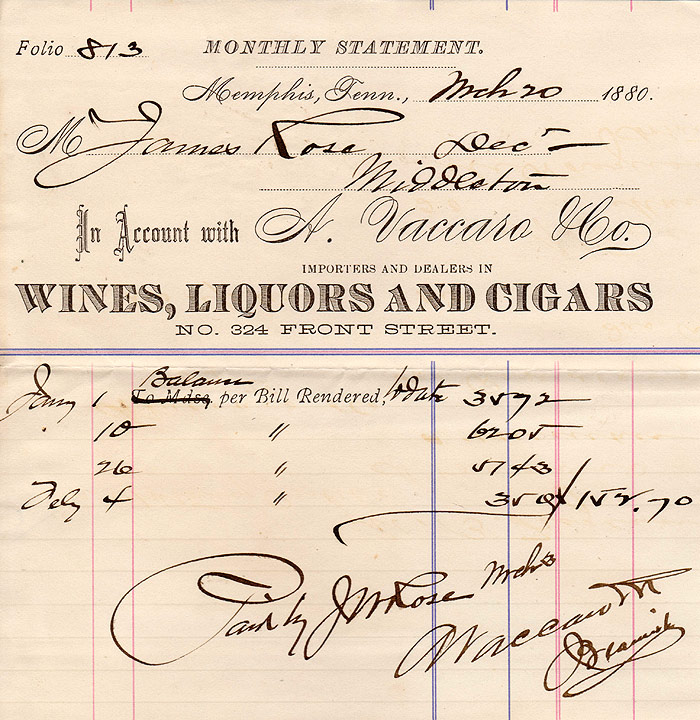 Folio 813 MONTHLY STATEMENT.
Memphis, Tenn., Mch 20 1880.
M James Rose Decd
Middleton
In Account with A. Vaccaro & Co.
IMPORTERS AND DEALERS IN
WINES, LIQUORS AND CIGARS
NO. 324 FRONT STREET.
Balance
Jany 1 To Mdse per Bill Rendered, to date 35 72
10 " 62 05
26 " 51 43
Feby 4 " 3 50 / 152.70
Paid by J W Rose Mch
A Vaccaro